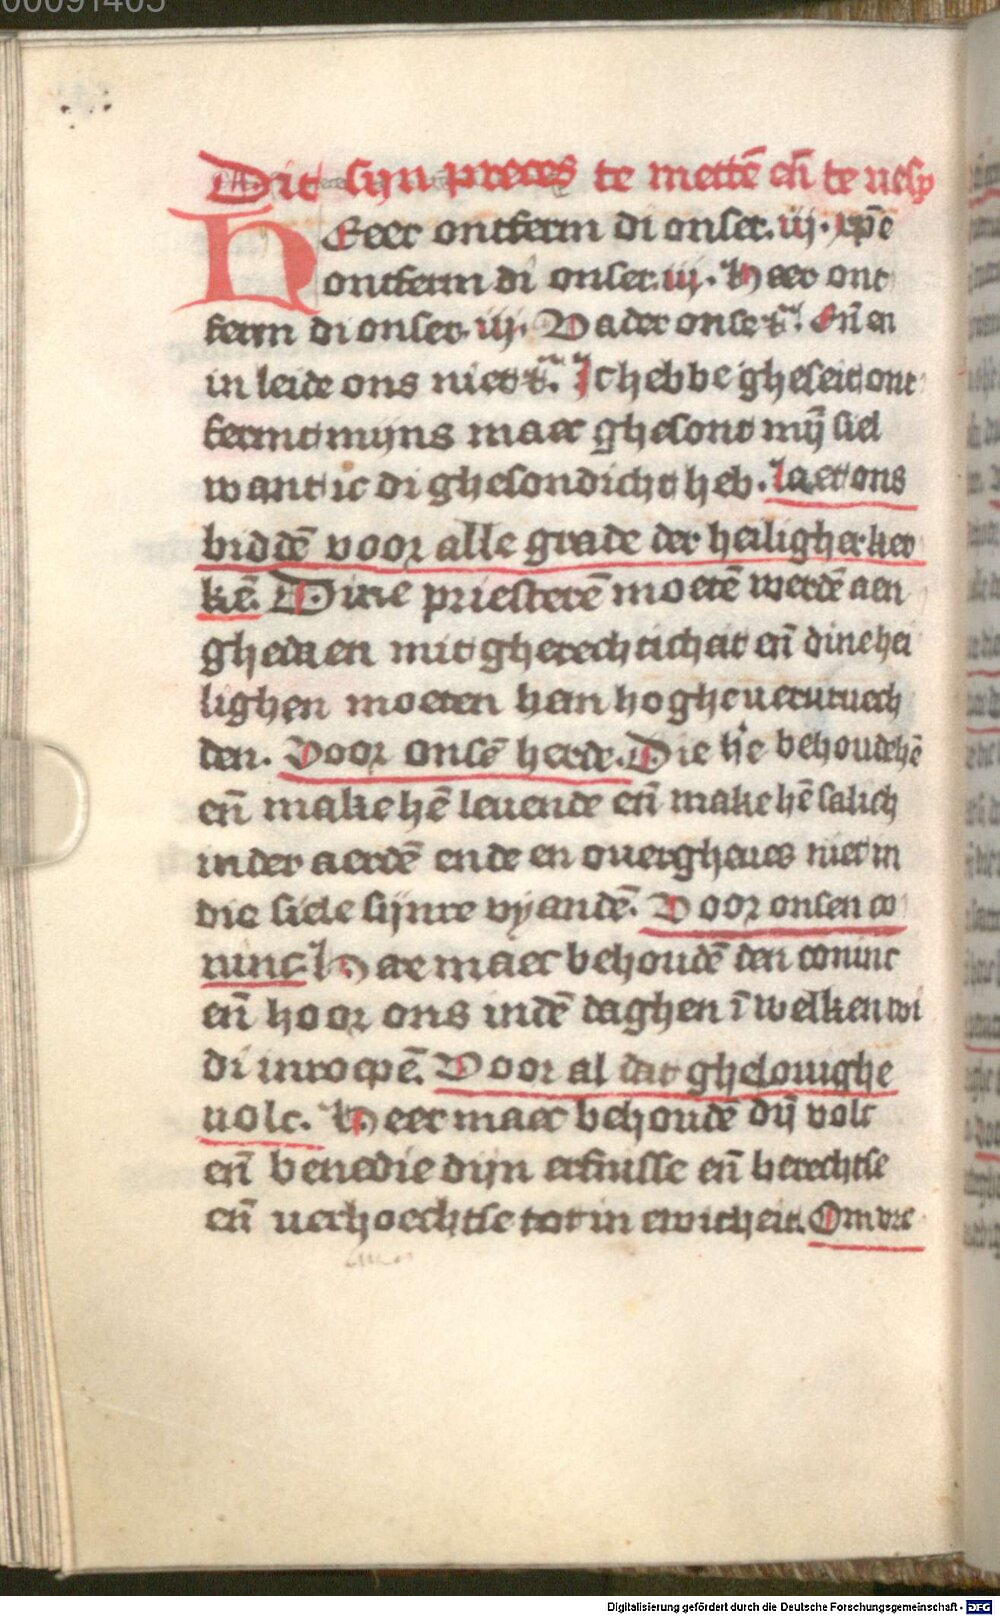 00091405
Dit sijn preces te mettē eñ te vesp
HEeer ontferm di onser. iij. xp̄e
ontferm di onser. iij. Heer ont
ferm di onser. iij. Vader onse tͣ. Eñ en
in leide ons niet tͣ. Ic hebbe gheseit ont
fermt mijns maer ghesont mȳ siel
want ic di ghesondicht heb. Laet ons
biddē voor alle grade der heiligher ker
kē. Dine priesterē moetē werdē aen
ghedaen mit gherechticheit eñ dine hei
lighen moeten hem hogher vervruech
den. Voor onsē herde. Die he behoude hē
eñ make hē levende eñ make hē salich
in der aerdē ende en overgheves niet in
die siele sijnre vyandē. Voor onsen co
ninc. Here maer behoudē den coninc
eñ hoor ons indē daghen ī welken wi
di inroepē. Voor al dat ghelovighe
volc. Heer maec behoudē dij volc
eñ benedie dijn erfnisse eñ berechtse
eñ verhoechtse tot in ewicheit. Om vre
Digitalisierung gefördert durch die Deutsche Forschungsgemeinschaft - DFG